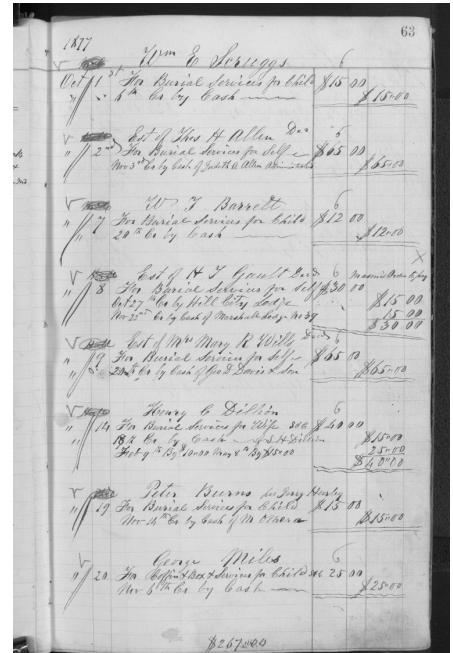 63
1877
Wm E Scruggs 6
Oct 1st For Burial Services for Child $15 00
" " 5th Cr by Cash $15.00
Est of Thos H Allen Decd 6
" 2nd For Burial Services for Self $65 00
Nov 3rd Cr by Cash of Judith A Allen Administratrix $65.00
W T Barrett 6
" 7 For Burial Services for Child $12 00
20th Cr by Cash $12.00
Est of H T Gault Decd 6 Masonic Order to pay X
" 8 For Burial Services for Self $30 00
Oct 27th Cr by Hill City Lodge $15 00
Nov 22nd Cr by Cash of Marshall Lodge No 39 15 00
$30 00
Est of Mrs Mary R Wills Decd 6
" 9 For Burial Services for Self $65 00
20th Cr by Cash of Geo D Davis & Son $65.00
Henry C Dillion 6
" 14 For Burial Services for Wife $40 00
18th Cr by Cash $15.00
Feby 9th By $10.00 May 8th By $15.00 25.00
$40.00
Peter Burns for Jerry Hurley 6
" 19 For Burial Services for Child $15 00
Nov 14th Cr by Cash of M $15.00
George Miles 6
" 20 For Coffin & Box & Services for Child 25 00
Nov 5th Cr by Cash $25.00
$267.00